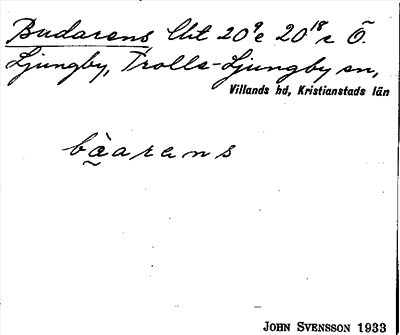 Budarens Lht 20⁹e 20¹⁸r Ö.
Ljungby, Trolle-Ljungby sn,
Villands hd, Kristianstads län
bàarens
JOHN SVENSSON 1933